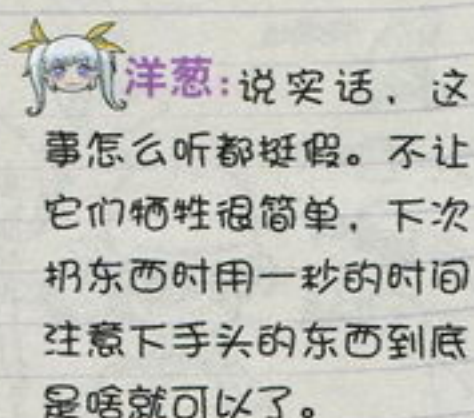 洋葱:说实话，这
事怎么听都挺假。不让
它们牺牲很简单，下次
扔东西时用一秒的时间
注意下手头的东西到底
是啥就可以了。